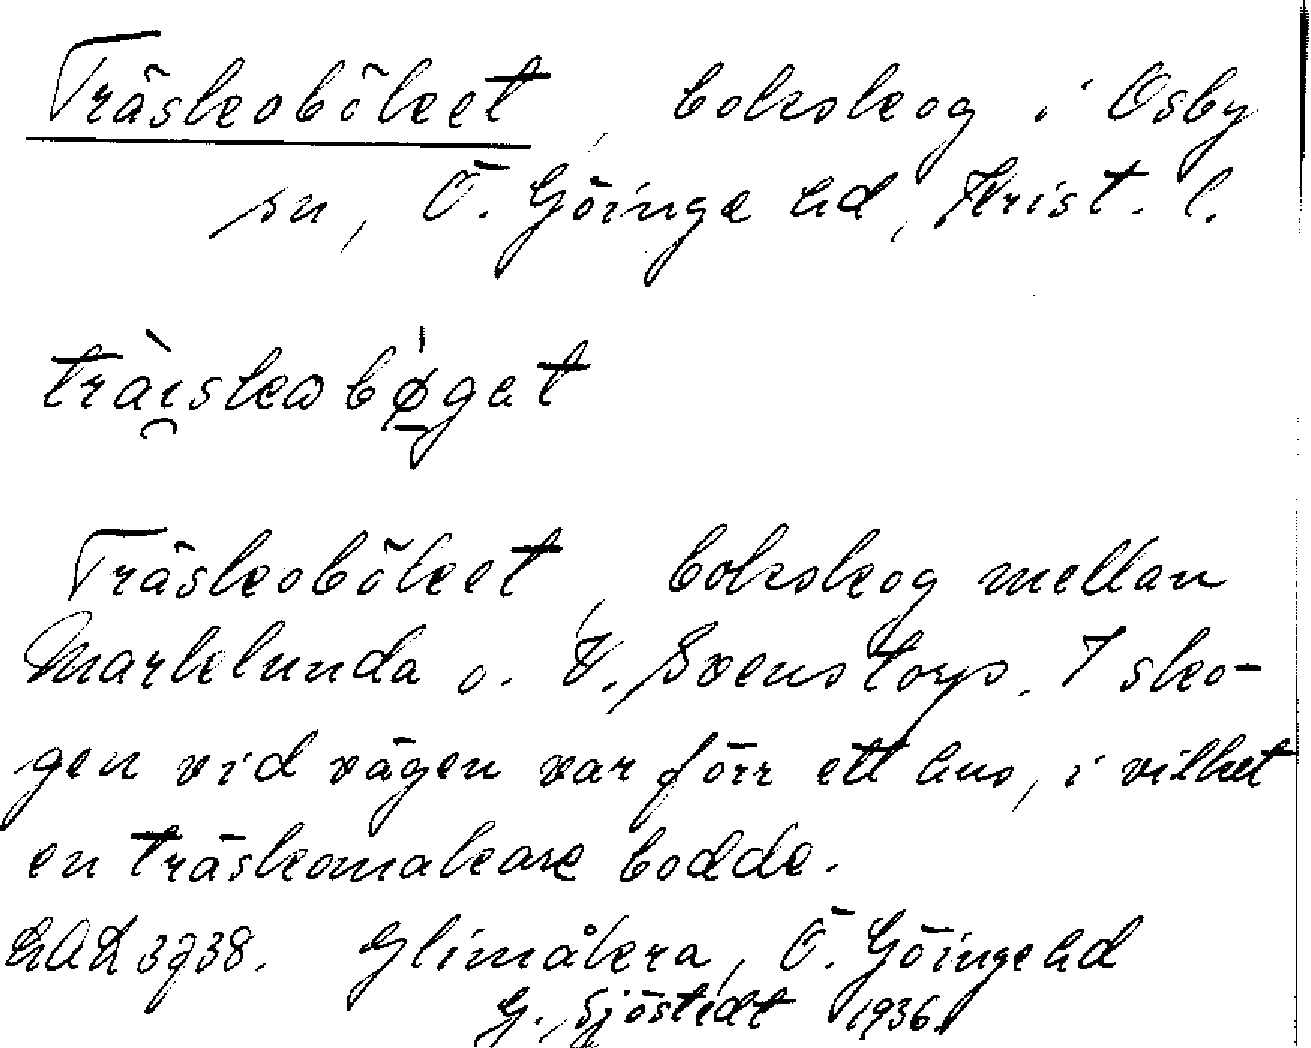 Träskoböket, bokskog i Osby
sn, Ö. Göinge hd, Krist. l.
träiskωbø̱gat
Träskoböket, bokskog mellan
Marklunda o. V. Svenstorp. I sko-
gen vid vägen var förr ett hus, i vilket
en träskomakare bodde.
LAL 3738. Glimåkra, Ö. Göinge hd
G. Sjöstedt 1936.